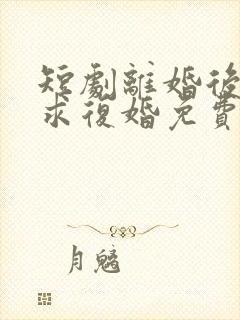 短劇離婚後
求復婚免費
月魑